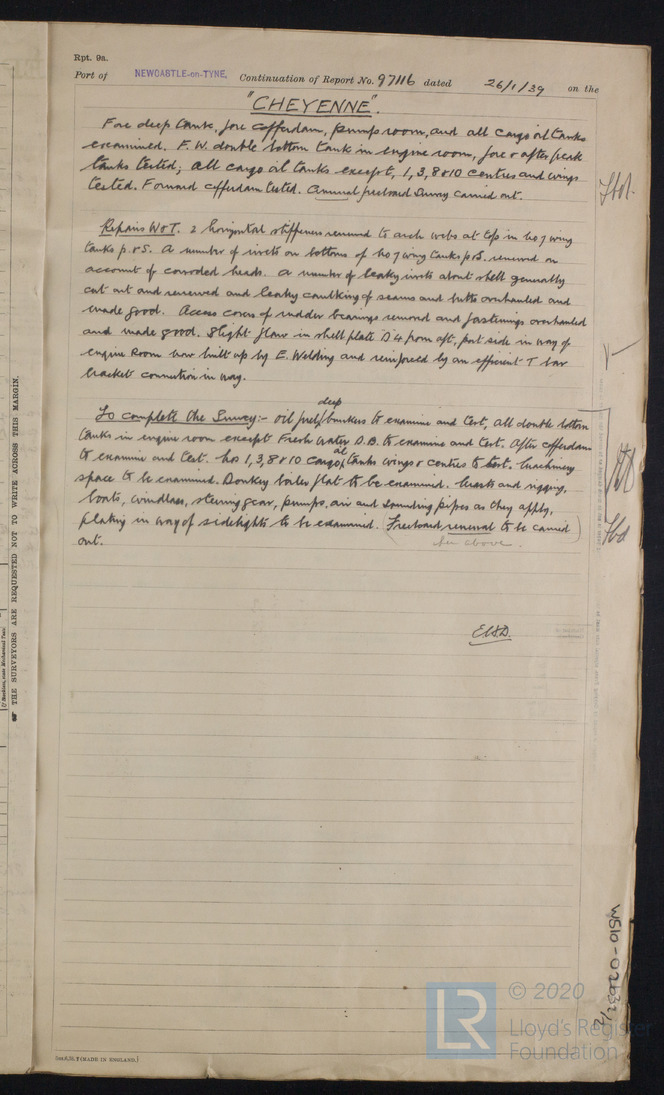 Rpt. 9a.
Port of NEWCASTLE-on-TYNE. Continuation of Report No. 97116 dated 26/1/39 on the
"CHEYENNE".
Fore deep tank, fore cofferdam, pump room, and all cargo oil tanks
examined. F.W. double bottom tank in engine room, fore & after peak
tanks tested; all cargo oil tanks except, 1, 3, 8 & 10 centres and wings
tested. Forward cofferdam tested. Annual freeboard Survey carried out.
Repairs W&T. 2 horizontal stiffeners renewed to arch webs at top in No 7 wing
tanks p. & S. A number of rivets on bottoms of No 7 wing tanks p&S. renewed on
account of corroded heads. A number of leaky rivets about shell generally
cut out and renewed and leaky caulking of seams and butts overhauled and
made good. Access covers of rudder bearings removed and fastenings overhauled
and made good. Slight flaw in shell plate D4 from aft, port side in way of
engine Room now built up by E. Welding and reinforced by an efficient T bar
bracket connection in way.
To complete the Survey:- oil fuel deep bunkers to examine and test, all double bottom
tanks in engine room except Fresh Water D.B. to examine and test. After cofferdam
to examine and test. Nos 1, 3, 8 & 10 cargo oil tanks wings & centres to test. Machinery
space to be examined. Donkey boiler flat to be examined. Masts and rigging,
boats, windlass, steering gear, pumps, air and sounding pipes as they apply,
plating in way of sidelights to be examined. (Freeboard renewal to be carried
out.
See above.
THE SURVEYORS ARE REQUESTED NOT TO WRITE ACROSS THIS MARGIN.
(MADE IN ENGLAND.)
© 2020
LR
Lloyd's Register
Foundation